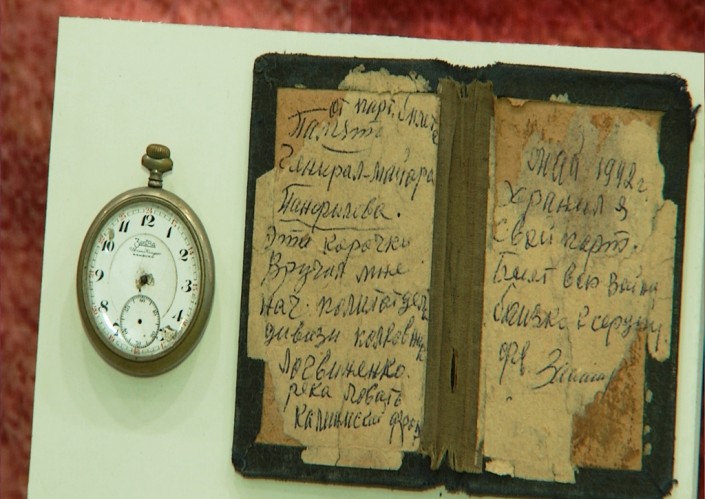 Zenith
11 12 1
10 2
9 3
8 4
от парт. билета
Память
Генерал-майора
Панфилова.
Эти корочки
Вручил мне
нач. политотдела
дивизи
Логвиненко.
река Ловать
Калининский фронт
май 1942 г.
Хранил я
свой парт.
билет всю войну
близко к сердцу.